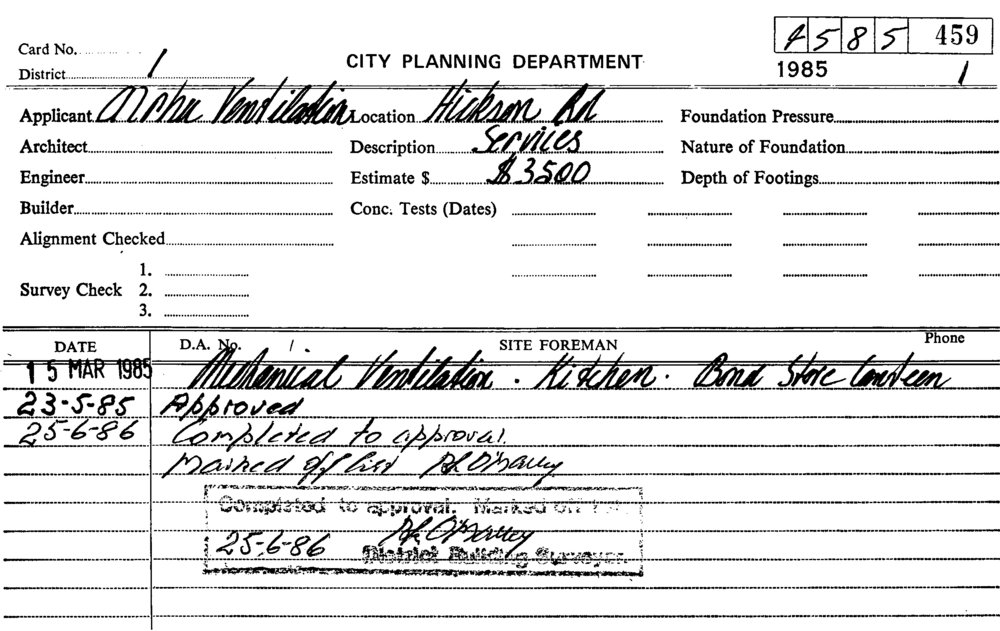 4585 459
Card No.
CITY PLANNING DEPARTMENT
District 1
1985 1
Applicant Alpha Ventilation Location Hickson Rd Foundation Pressure
Architect Description Services Nature of Foundation
Engineer Estimate $ $3500 Depth of Footings
Builder Conc. Tests (Dates)
Alignment Checked
1.
Survey Check 2.
3.
DATE D.A. No. SITE FOREMAN Phone
15 MAR 1985 Mechanical Ventilation. Kitchen. Bond Store Canteen
23-5-85 Approved
25-6-86 Completed to approval.
Marked off list
Completed to approval. Marked off
25-6-86
District Building Surveyor.